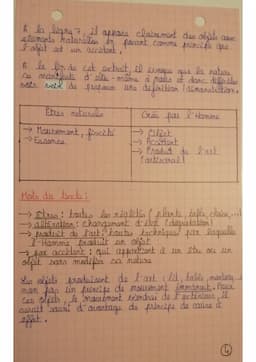 A la ligne 7, il apparait clairement des objets avec
éléments naturelles en posant comme principe que
l'objet est un accident.
A la fin de cet extrait, il évoque que la nature
se manifeste d'elle-même à nous et donc
de proposer une définition (démonstration.
Êtres naturelles
Créé par l'Homme
→ Mouvement, fixité
→ Essence
→ Objet
→ Accident
→ Produit de l'art
(artisanal)
Mots du texte :
→ Êtres : toutes les réalités (plante, table, chaise, ...)
→ altération : changement d'état (dégradation)
→ produit de l'art : toutes techniques par laquelle
l'Homme produit un objet
→ par accident : qui appartient à un être ou un
objet sans modifier sa nature
Les objets produisent de l'art (lit, table, manteau,
n'ont pas un principe de mouvement immanent. Pour
ces objets, le mouvement viendra de l'extérieur, il
aurait davantage de principe de cause à
effet.
4